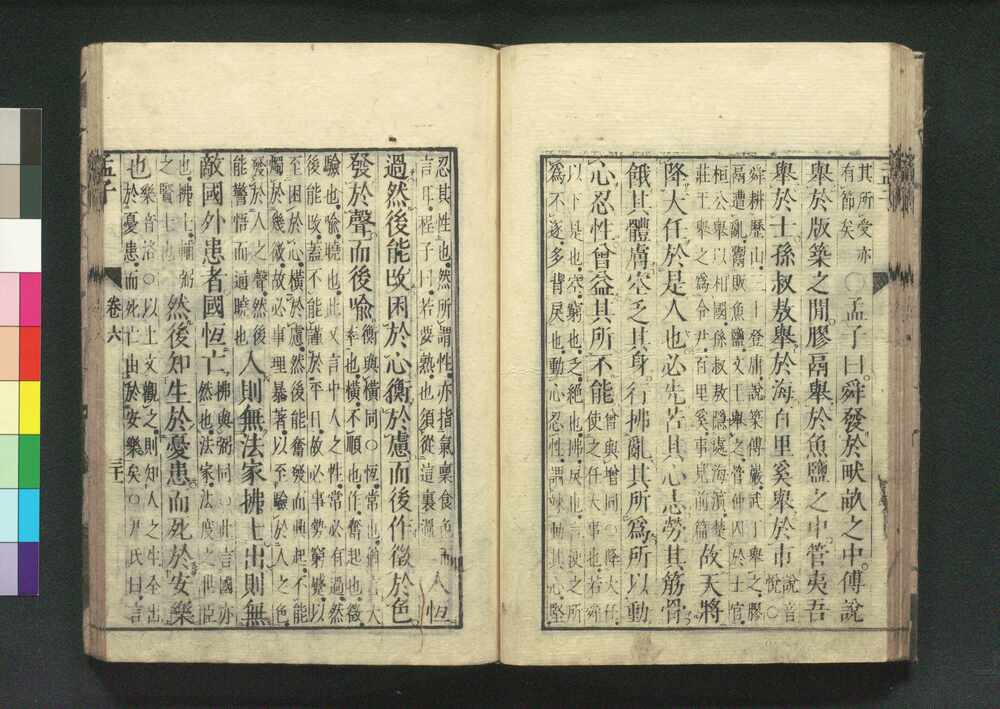 其所愛亦
有節矣
○孟子曰舜發於畎畝之中傅說
舉於版築之閒膠鬲舉於魚鹽之中管夷吾
舉於士孫叔敖舉於海百里奚舉於市
說音
悅○
舜耕歷山三十登庸說築傅巖武丁舉之膠
鬲遭亂鬻販魚鹽文王舉之管仲囚於士官
桓公舉以相國孫叔敖隱處海濱楚
莊王舉之爲令尹百里奚事見前篇
故天將
降大任於是人也必先苦其心志勞其筋骨
餓其體膚空乏其身行拂亂其所爲所以動
心忍性曾益其所不能
曾與增同○降大任
使之任大事也若舜
以下是也空窮也乏絕也拂戾也言使之所
爲不遂多背戾也動心忍性謂竦動其心堅
忍其性也然所謂性亦指氣稟食色而
言耳程子曰若要熟也須從這裏過
人恆
過然後能改困於心衡於慮而後作徵於色
發於聲而後喻
衡與橫同○恆常也猶言大
率也橫不順也作奮起也徵
驗也喻曉也此又言中人之性常必有過然
後能改蓋不能謹於平日故必事勢窮蹙以
至困於心橫於慮然後能奮發而興起不能
燭於幾微故必事理暴著以至驗於人之色
發於人之聲然後
能警悟而通曉也
入則無法家拂士出則無
敵國外患者國恆亡
拂與弼同○此言國亦
然也法家法度之世臣
也拂士輔弼
之賢士也
然後知生於憂患而死於安樂
也
樂音洛○以上文觀之則知人之生全出
於憂患而死亡由於安樂矣○尹氏曰言
孟子
卷六